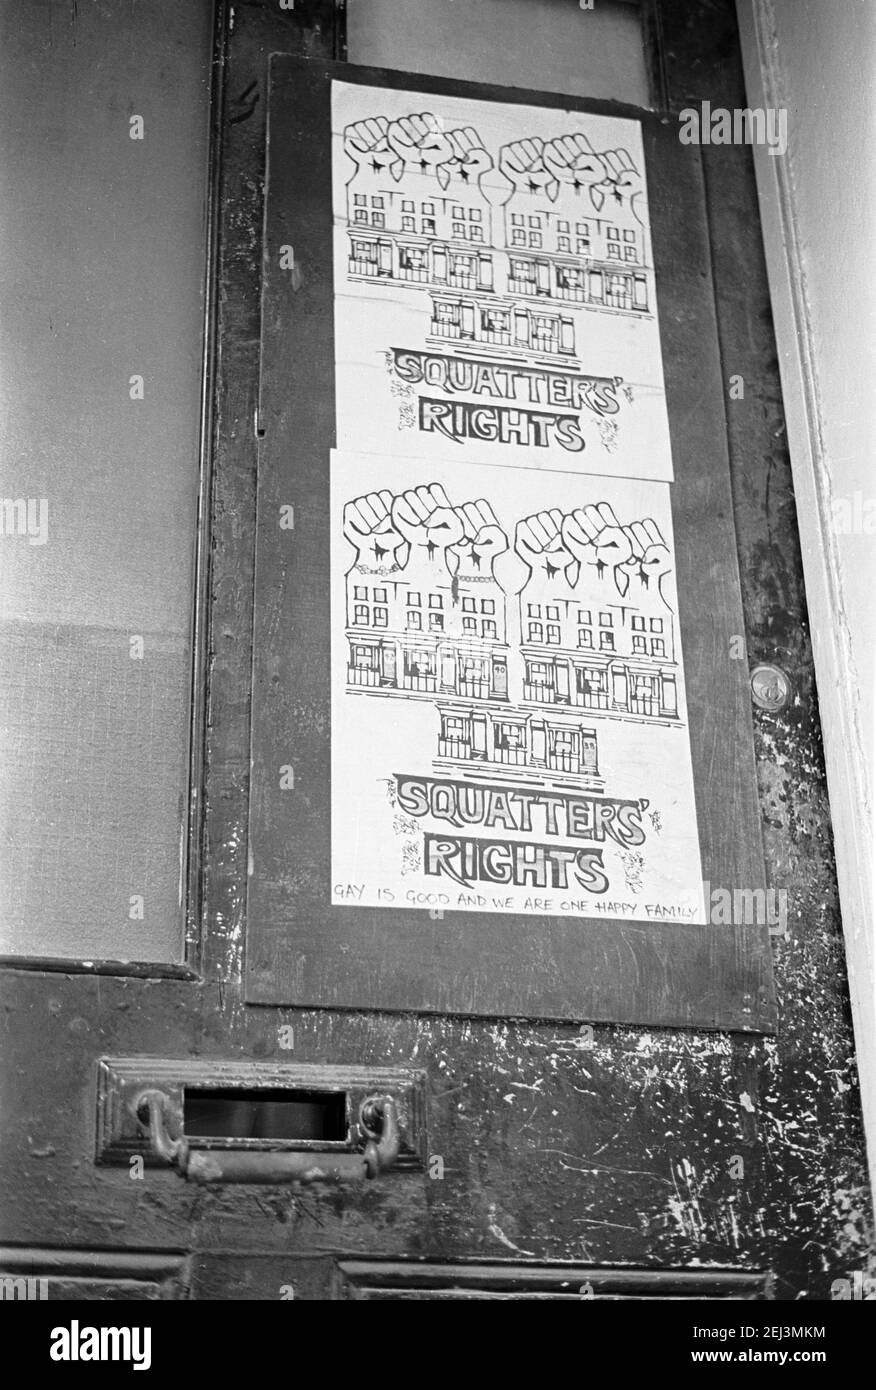 SQUATTERS'
RIGHTS
40
SQUATTERS'
RIGHTS
GAY IS GOOD AND WE ARE ONE HAPPY FAMILY
alamy
alamy
Image ID: 2EJ3MKM
www.alamy.com